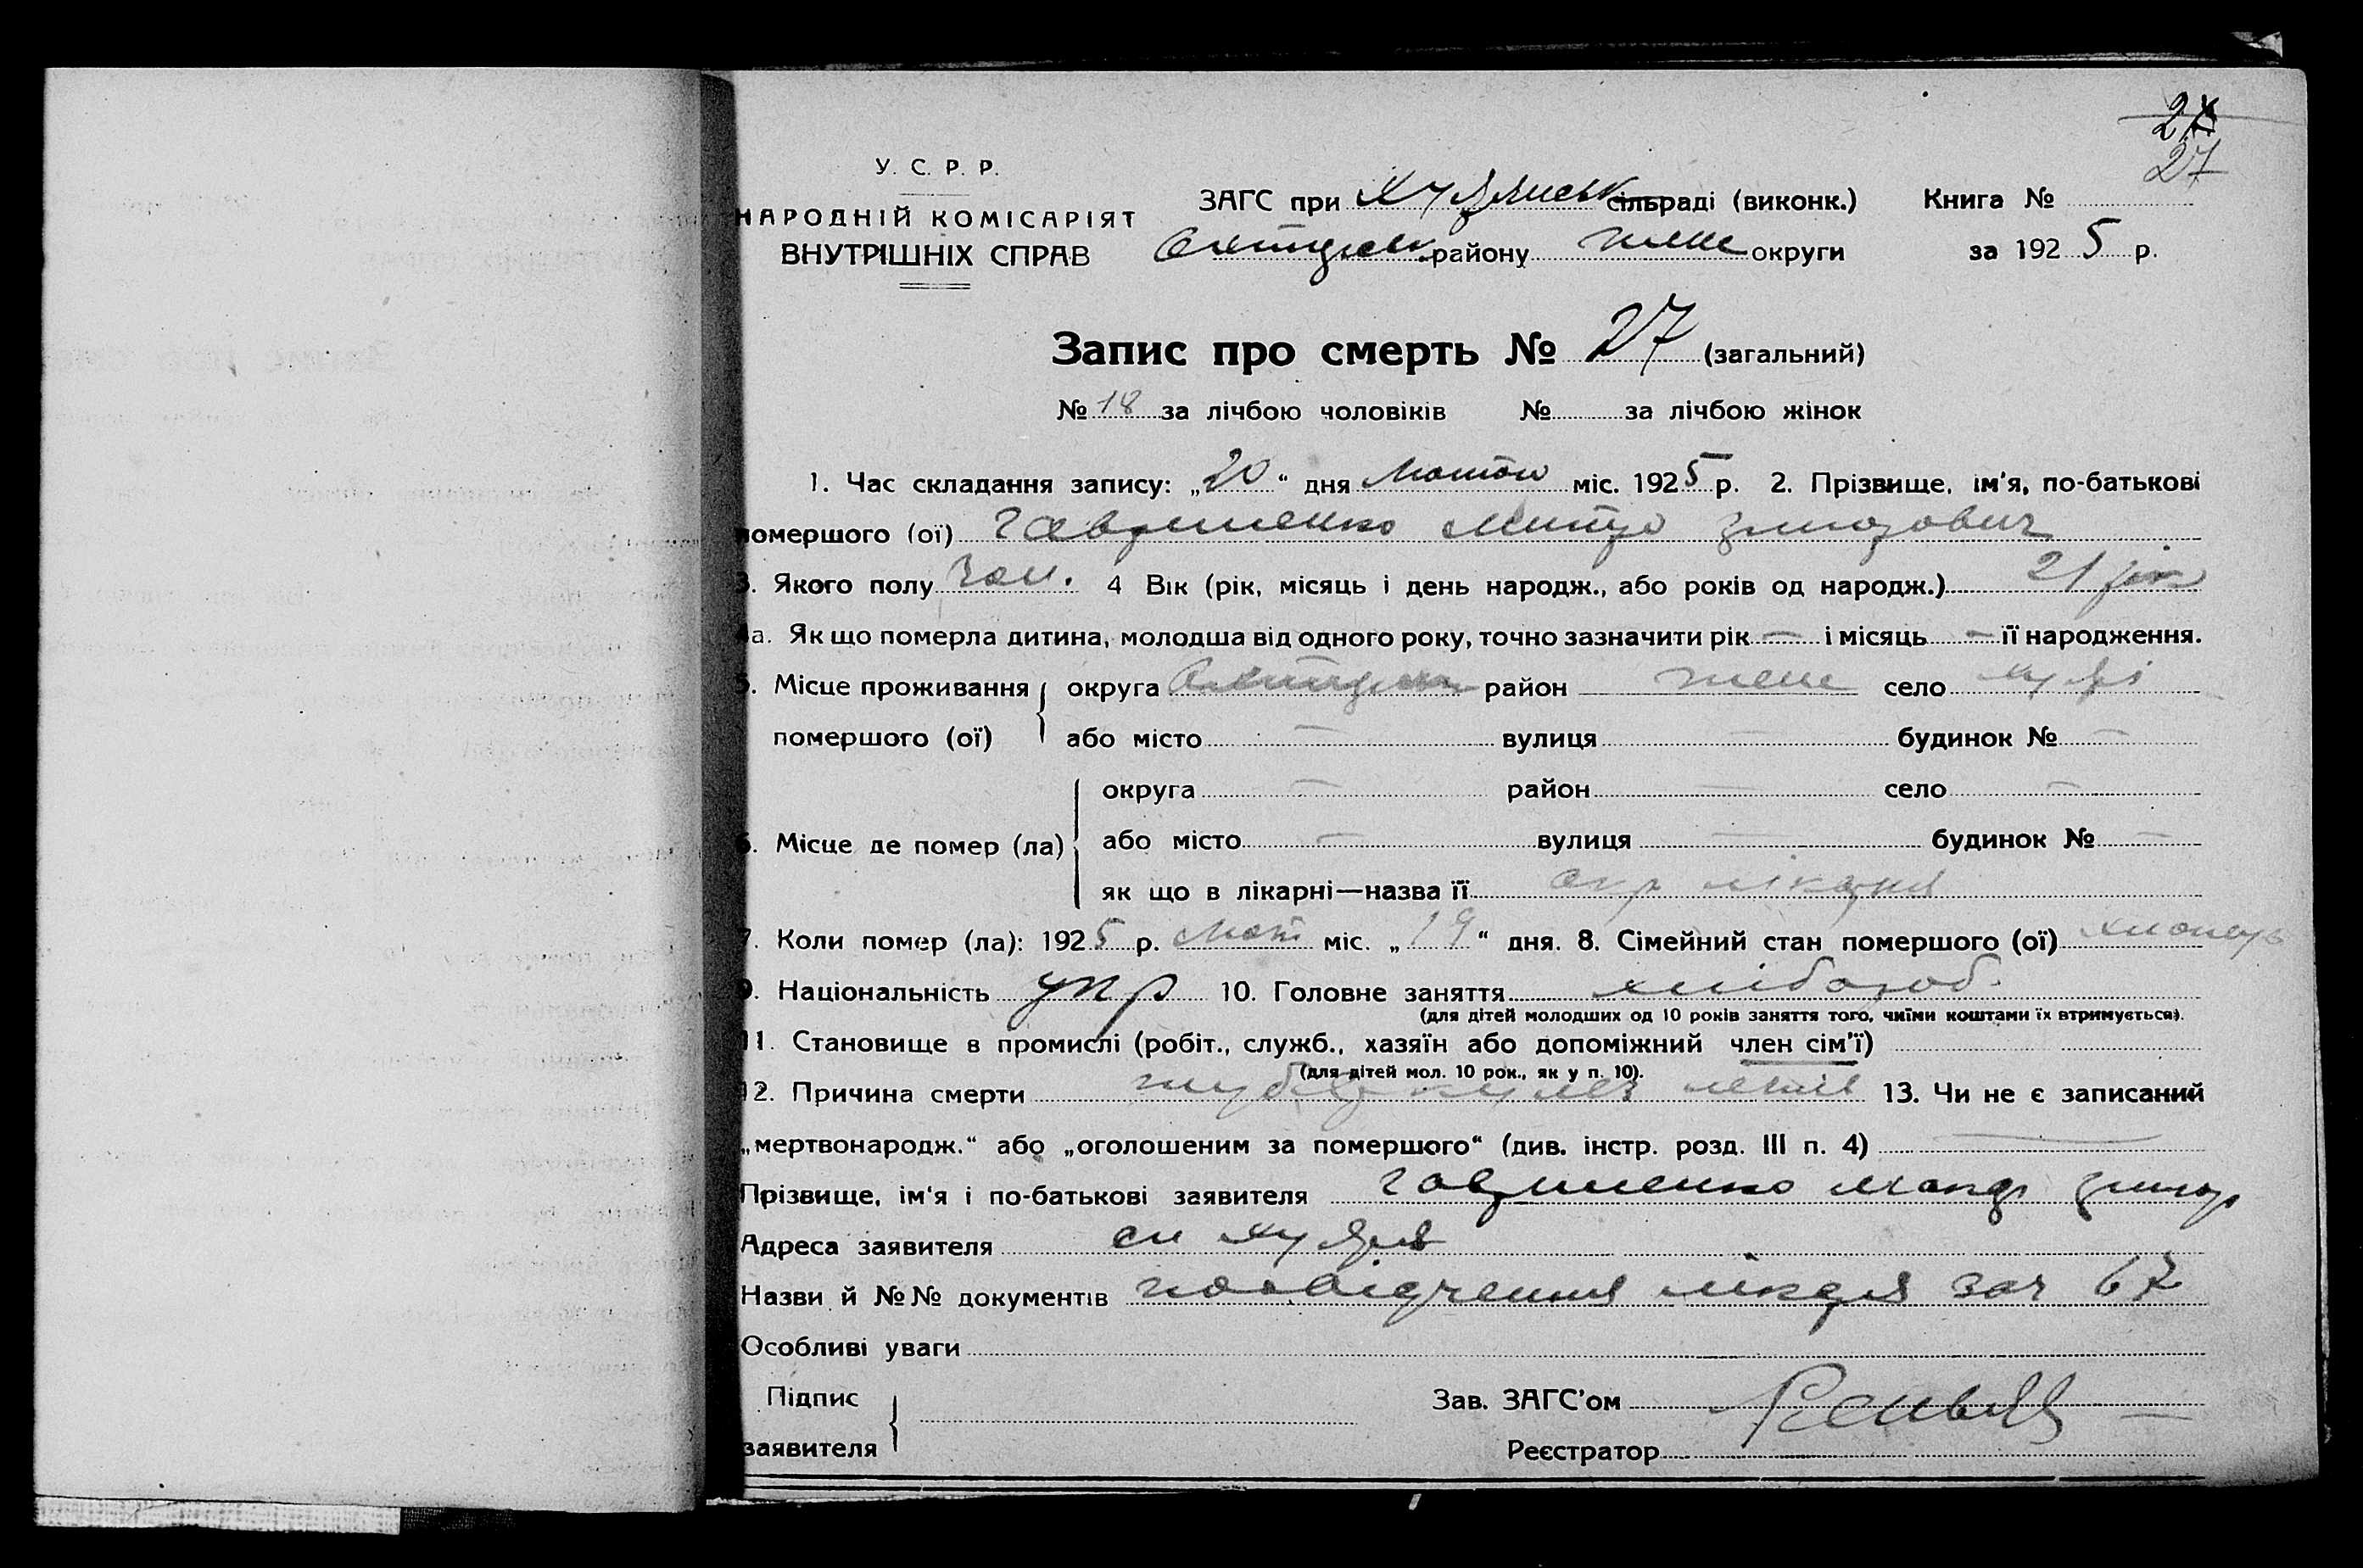 27
У. С. Р. Р.
НАРОДНІЙ КОМІСАРІЯТ
ВНУТРІШНІХ СПРАВ
ЗАГС при сільраді (виконк.) Книга №
району теж округи за 1925 р.
Запис про смерть № 27 (загальний)
№ 18 за лічбою чоловіків № за лічбою жінок
1. Час складання запису: „20“ дня міс. 1925 р. 2. Прізвище, ім'я, по-батькові
помершого (ої) Гавриленко Митро Григорович
3. Якого полу Чол. 4 Вік (рік, місяць і день народж., або років од народж.) 21 рік
4а. Як що померла дитина, молодша від одного року, точно зазначити рік — і місяць — її народження.
5. Місце проживання округа район теж село
помершого (ої) або місто — вулиця — будинок № —
округа — район — село —
6. Місце де помер (ла) або місто — вулиця — будинок № —
як що в лікарні—назва її окр лікарня
7. Коли помер (ла): 1925 р. міс. „19“ дня. 8. Сімейний стан помершого (ої) хлопець
9. Національність укр 10. Головне заняття хлібороб.
(для дітей молодших од 10 років заняття того, чиїми коштами їх втримується).
11. Становище в промислі (робіт., служб., хазяїн або допоміжний член сім'ї)
(для дітей мол. 10 рок., як у п. 10).
12. Причина смерти туберкульоз легків 13. Чи не є записаний
„мертвонародж.“ або „оголошеним за помершого“ (див. інстр. розд. III п. 4) —
Прізвище, ім'я і по-батькові заявителя Гавриленко Григор
Адреса заявителя
Назви й №№ документів посвідчення лікаря зач 67
Особливі уваги
Підпис
заявителя
Зав. ЗАГС'ом
Реєстратор